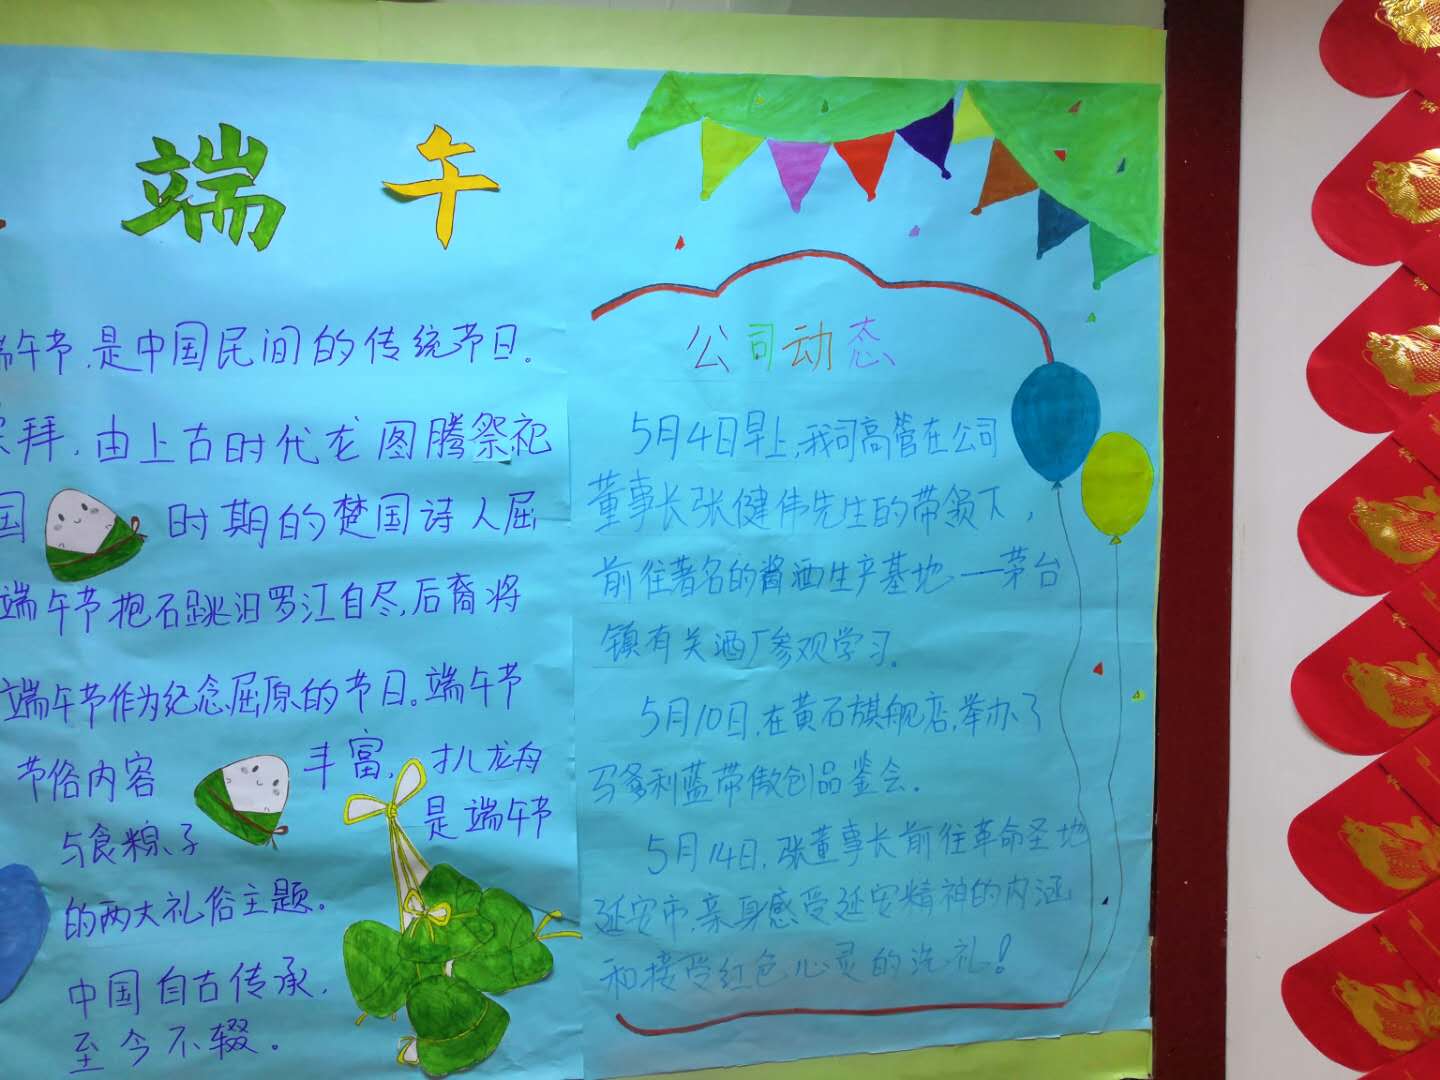 端 午
端午节,是中国民间的传统节日。
拜,由上古时代龙图腾祭祀
国 时期的楚国诗人屈
端午节抱石跳汨罗江自尽,后裔将
端午节作为纪念屈原的节日。端午节
节俗内容 丰富, 扒龙舟
与食粽子 是端午节
的两大礼俗主题。
中国自古传承,
至今不辍。
公司动态
5月4日早上,我司高管在公司
董事长张健伟先生的带领下,
前往著名的酱酒生产基地——茅台
镇有关酒厂参观学习。
5月10日,在黄石旗舰店,举办了
马爹利蓝带傲创品鉴会。
5月14日,张董事长前往革命圣地
延安市,亲身感受延安精神的内涵
和接受红色心灵的洗礼!